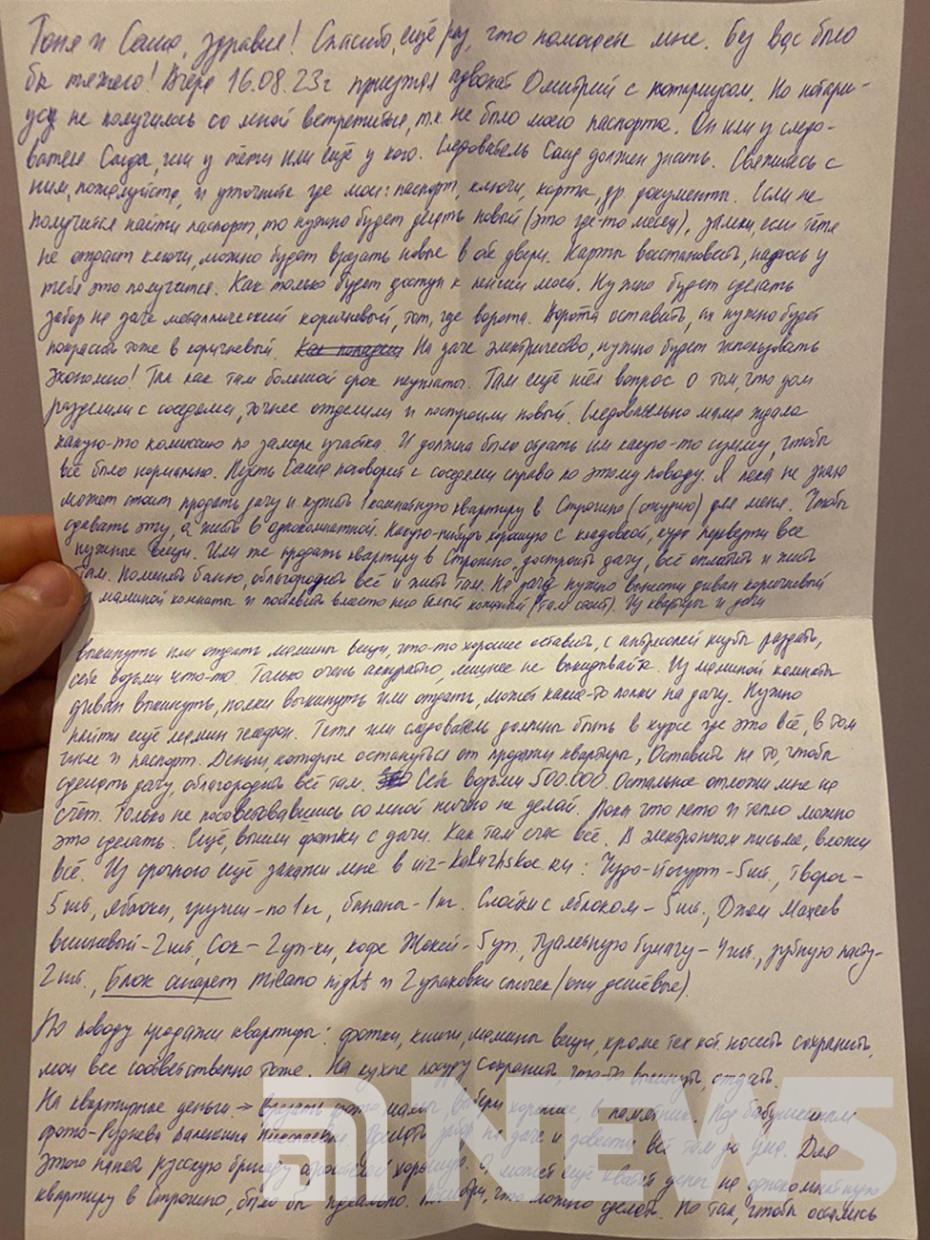 Тоня и Саша, здравия! Спасибо, ещё раз, что помогаете мне. Без вас было
бы тяжело! Вчера 16.08.23г приезжал адвокат Дмитрий с нотариусом. Но нотари-
усу не получилось со мной встретиться, т.к. не было моего паспорта. Он или у следо-
вателя Саида, или у тёти или ещё у кого. Следователь Саид должен знать. Свяжитесь с
ним, пожалуйста, и уточните где мои: паспорт, ключи, карты, др. документы. Если не
получится найти паспорт, то нужно будет делать новый (это где-то месяц), замки, если тётя
не отдаст ключи, можно будет врезать новые в обе двери. Карты восстановить, надеюсь у
тебя это получится. Как только будет доступ к пенсии моей. Нужно будет сделать
забор на даче металлический коричневый, тот, где ворота. Ворота оставить, их нужно будет
покрасить тоже в коричневый. На даче электричество, нужно будет использовать
экономно! Так как там большой срок неуплаты. Там ещё шёл вопрос о том, что дом
разделили с соседями, точнее отделили и построили новый. Следовательно мама ждала
какую-то комиссию по замере участка. И должна была отдать им какую-то сумму, чтобы
всё было нормально. Пусть Саша поговорит с соседями справа по этому поводу. Я пока не знаю
может стоит продать дачу и купить 1комнатную квартиру в Строгино (студию) для меня. Чтобы
сдавать эту, а жить в однокомнатной. Какую-нибудь хорошую с кладовкой, куда перевезти все
нужные вещи. Или же продать квартиру в Строгино, достроить дачу, всё оплатить и жить
там. Поменять баню, облагородить всё и жить там. На даче нужно вынести диван коричневый
из маминой комнаты и поставить вместо него белый кожаный (там стоит). Из квартиры и дачи
выкинуть или отдать мамины вещи, что-то хорошее оставить, с антресолей шубы раздать,
себе возьми что-то. Только очень аккуратно, лишнее не выкидывайте. Из маминой комнаты
диван выкинуть, полки выкинуть или отдать, может какие-то полки на дачу. Нужно
найти ещё мамин телефон. Тётя или следователь должны быть в курсе где это всё, в том
числе и паспорт. Деньги которые останутся от продажи квартиры, Оставить на то, чтобы
сделать дачу, облагородить всё там. Себе возьми 500.000. Остальное отложи мне на
счёт. Только не посоветовавшись со мной ничего не делай. Пока что лето и тепло можно
это сделать. Ещё, вышли фотки с дачи. Как там счас всё. В электронном письме, вложи
всё. Из срочного ещё закажи мне в uiz-kaluzhskoe.ru: Чудо-Йогурт -5шт, Творог-
5шт, яблоки, груши - по 1кг, бананы - 1кг. Слойки с яблоком - 5шт., Джем Махеев
вишнёвый - 2шт, Сок - 2уп-ки, кофе Жокей - 5уп, Туалетную бумагу - 4шт., зубную пасту-
2шт., Блок сигарет Milano night и 2 упаковки спичек (они дешёвые).
По поводу продажи квартиры: фотки, книги, мамины вещи, кроме тех кот. носить сохранить,
мои все соответственно тоже. На кухне посуду сохранить, что-то выкинуть, отдать.
На квартирные деньги → врезать фото мамы, выбери хорошее, в памятник. Под бабушкиным
фото - Руднева Валентина Николаевна. забор на даче и довести всё там до ума. Для
этого найти русскую бригаду строителей хорошую. А может ещё хватит денег на однокомнатную
квартиру в Строгино, было бы идеально. Посмотри, что можно сделать. Но так, чтобы остались
NEWS